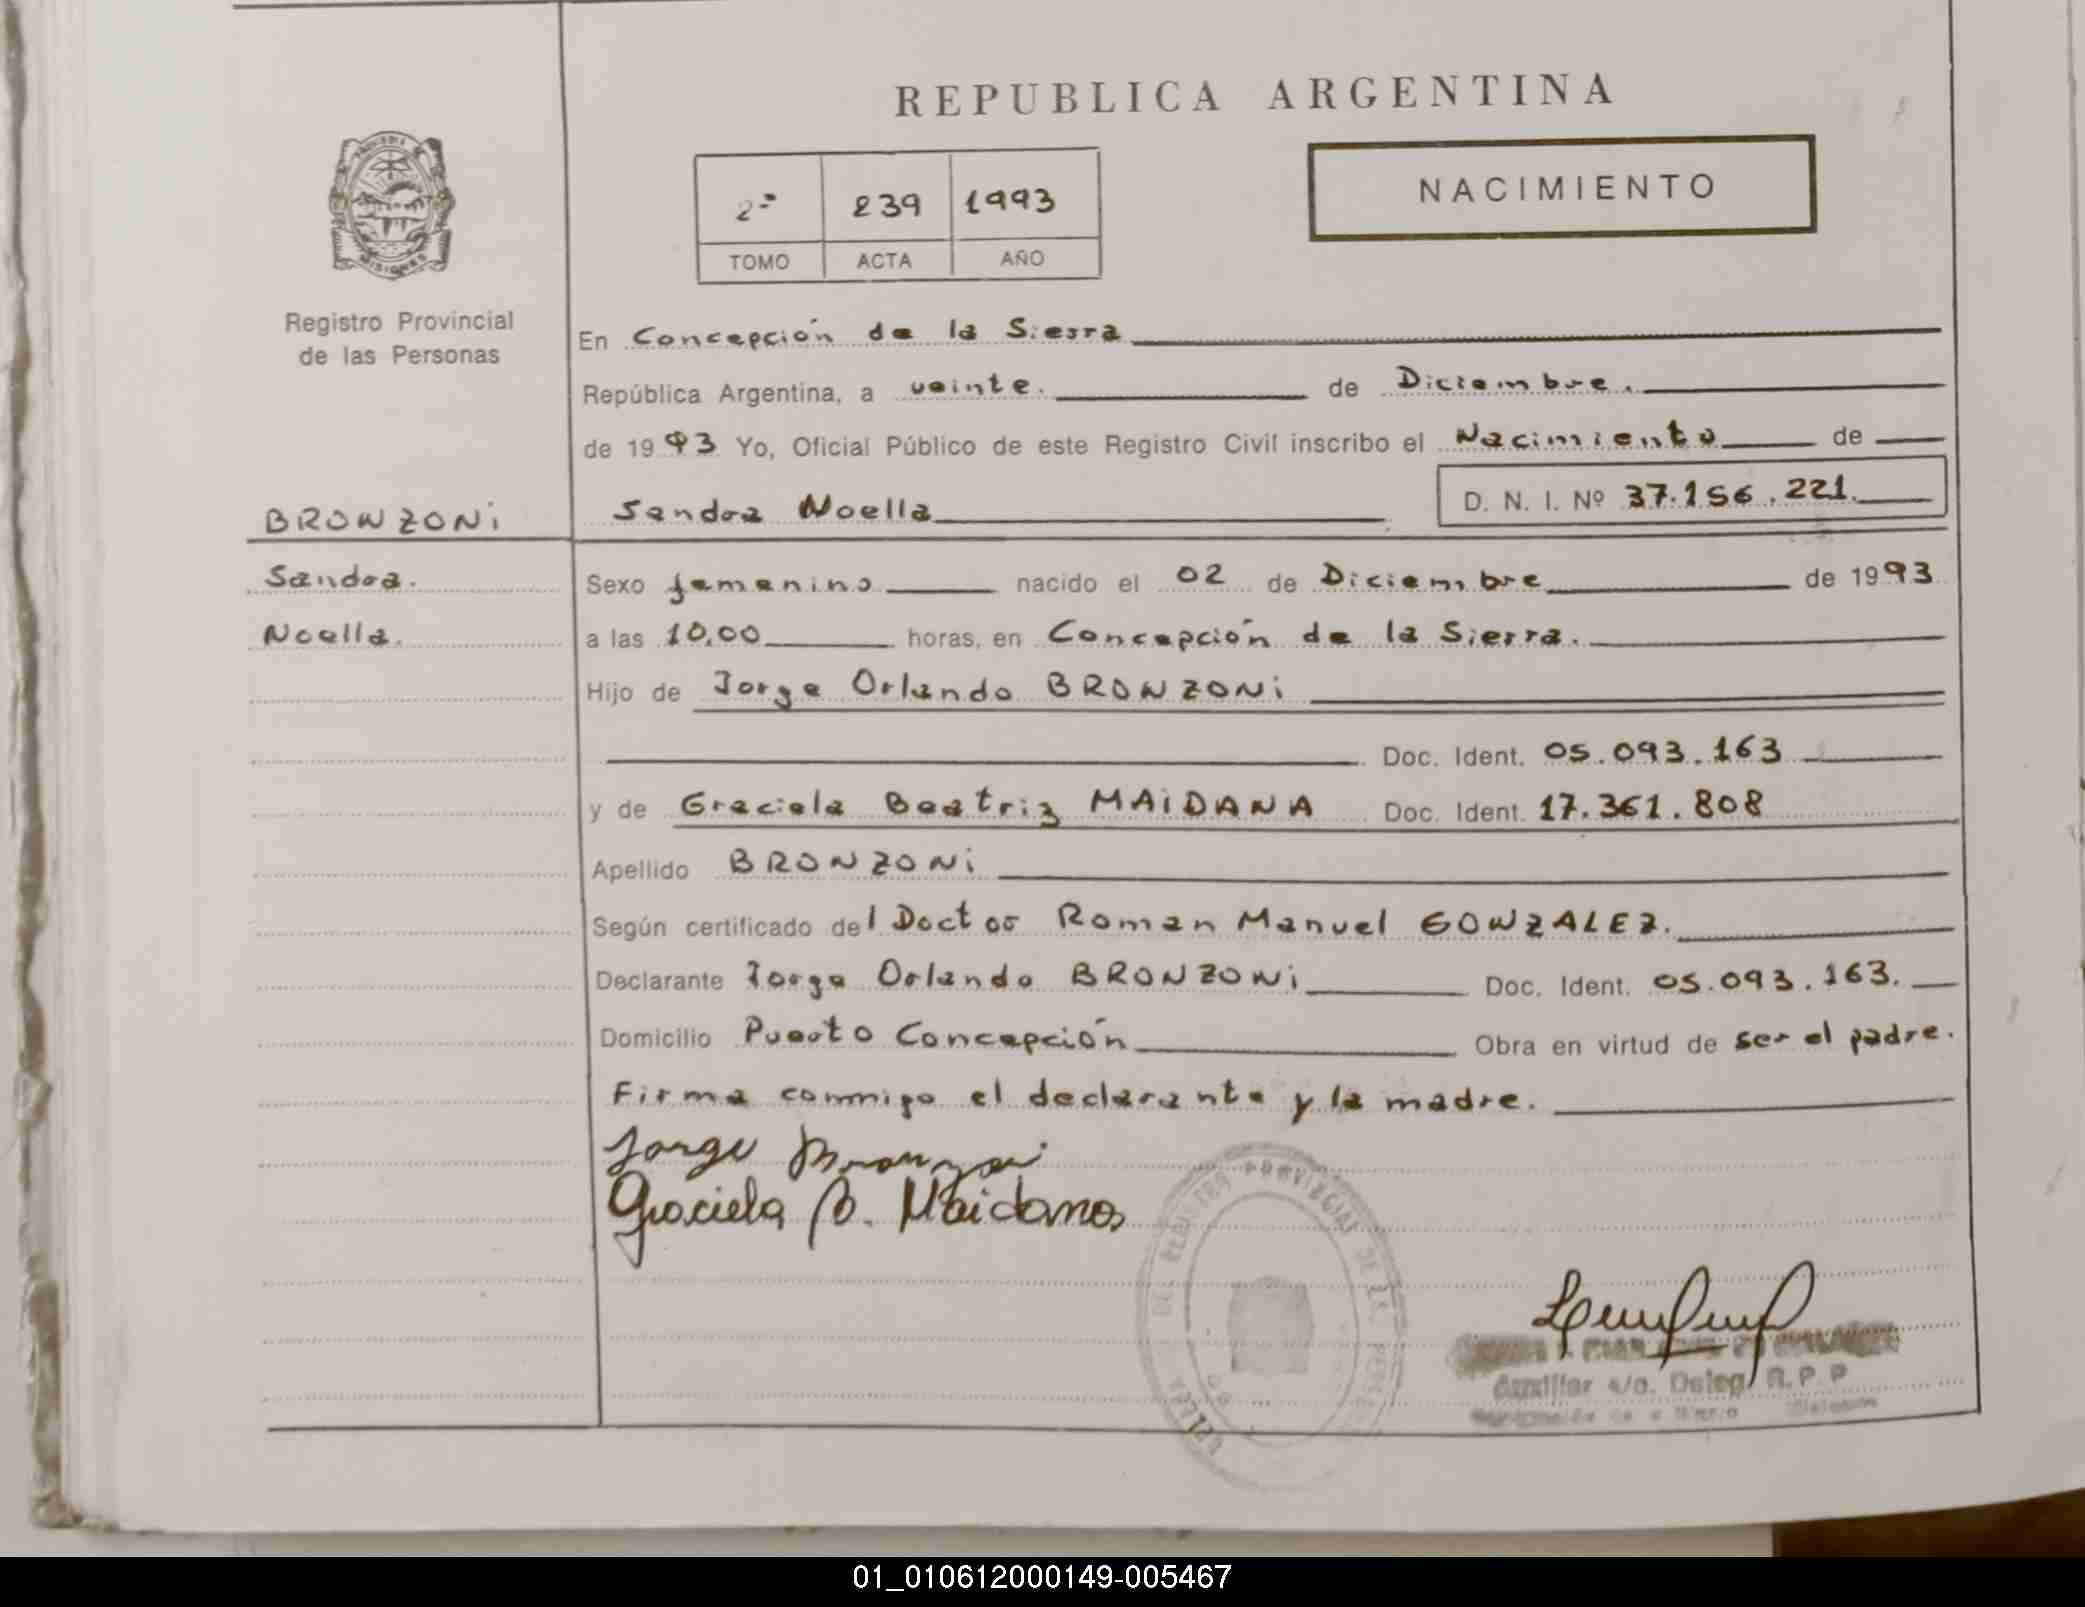 REPUBLICA ARGENTINA
NACIMIENTO
2º 239 1993
TOMO ACTA AÑO
MISIONES
Registro Provincial
de las Personas
En Concepción de la Sierra
República Argentina, a veinte. de Diciembre.
de 1993 Yo, Oficial Público de este Registro Civil inscribo el Nacimiento de
BRONZONi Sandra Noelia D. N. I. Nº 37.156.221.
Sandra. Sexo femenino nacido el 02 de Diciembre de 1993
Noelia. a las 10,00 horas, en Concepción de la Sierra.
Hijo de Jorge Orlando BRONZONi
Doc. Ident. 05.093.163
y de Graciela Beatriz MAiDANA Doc. Ident. 17.361.808
Apellido BRONZONi
Según certificado del Doctor Roman Manuel GONZALEZ.
Declarante Jorge Orlando BRONZONi Doc. Ident. 05.093.163.
Domicilio Puerto Concepción Obra en virtud de ser el padre.
Firma conmigo el declarante y la madre.
Jorge Bronzoni
Graciela B. Maidana
REGISTRO PROVINCIAL DE LAS
Auxiliar a/c. Deleg. R.P.P
01_010612000149-005467